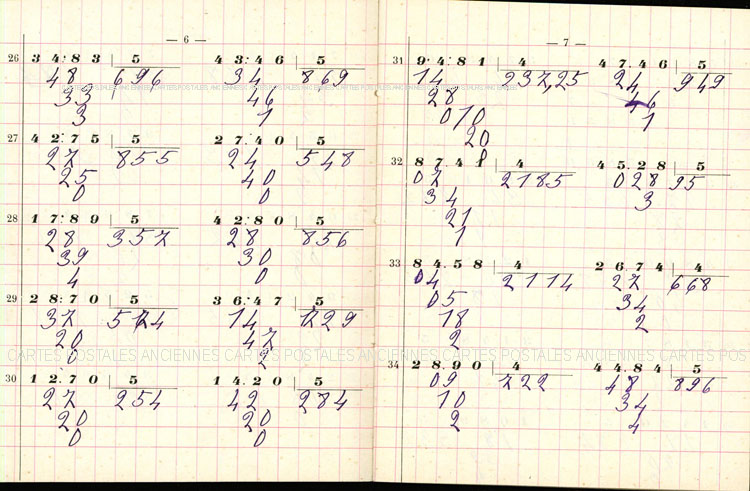 — 6 —
26 3 4.8 3 5 4 3.4 6 5
48 696 34 869
33 46
3 1
27 4 2.7 5 5 2 7.4 0 5
27 855 24 548
25 40
0 0
28 1 7.8 9 5 4 2.8 0 5
28 357 28 856
39 30
4 0
29 2 8.7 0 5 3 6.4 7 5
37 574 14 729
20 47
0 2
30 1 2.7 0 5 1 4.2 0 5
27 254 42 284
20 20
0 0
— 7 —
31 9 4.8 1 4 4 7.4 6 5
14 237,25 24 949
28 46
010 1
20
0
32 8 7.4 1 4 4 5.2 8 5
07 2185 028 95
34 3
21
1
33 8 4.5 8 4 2 6.7 4 4
04 2114 27 668
05 34
18 2
2
34 2 8.9 0 4 4 4.8 4 5
09 722 48 896
10 34
2 4
CARTES POSTALES ANCIENNES CARTES POSTALES ANCIENNES CARTES POSTALES ANCIENNES